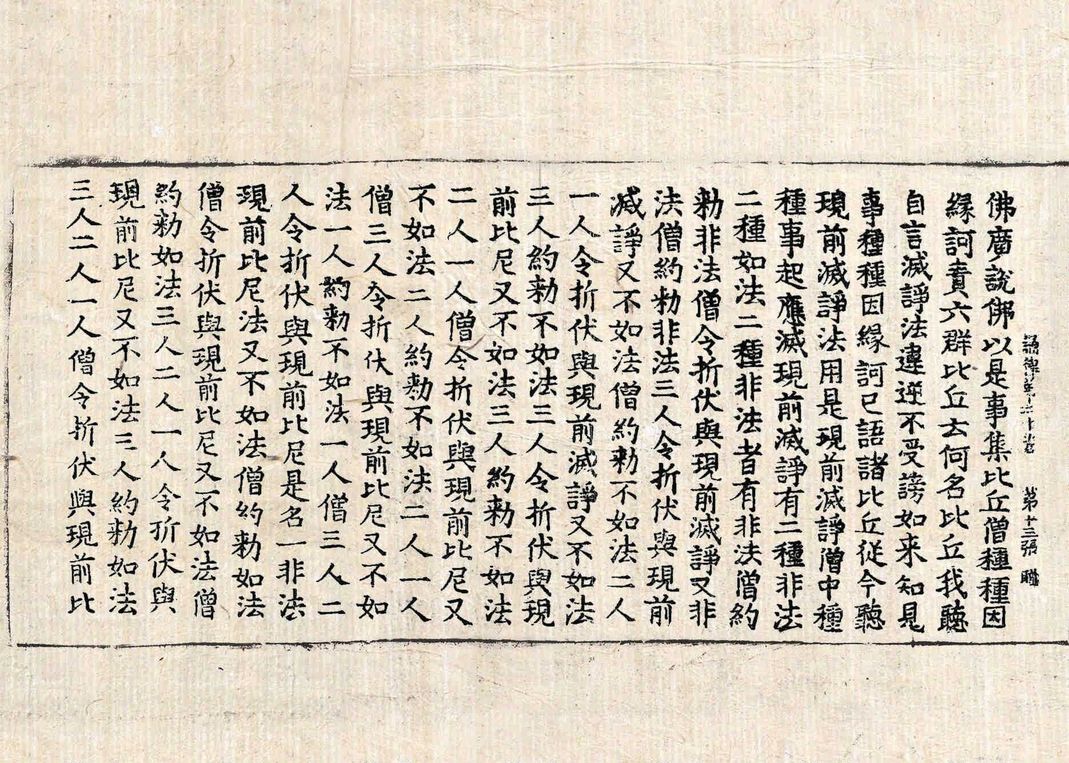 第十三張
佛廣說佛以是事集比丘僧種種因
緣訶責六群比丘云何名比丘我聽
自言滅諍法違逆不受謗如來知見
事種種因緣訶已語諸比丘從今聽
現前滅諍法用是現前滅諍僧中種
種事起應滅現前滅諍有二種非法
二種如法二種非法者有非法僧約
勑非法僧令折伏與現前滅諍又非
法僧約勑非法三人令折伏與現前
滅諍又不如法僧約勑不如法二人
一人令折伏與現前滅諍又不如法
三人約勑不如法三人令折伏與現
前比尼又不如法三人約勑不如法
二人一人僧令折伏與現前比尼又
不如法二人約勑不如法二人一人
僧三人令折伏與現前比尼又不如
法一人約勑不如法一人僧三人二
人令折伏與現前比尼是名一非法
現前比尼法又不如法僧約勑如法
僧令折伏與現前比尼又不如法僧
約勑如法三人二人一人令折伏與
現前比尼又不如法三人約勑如法
三人二人一人僧令折伏與現前比